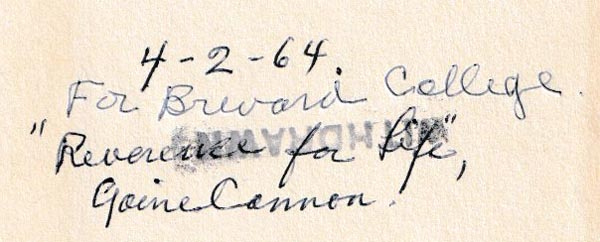 4-2-64.
For Brevard College.
"Reverence for Life",
WITHDRAWN
Gaine Cannon.